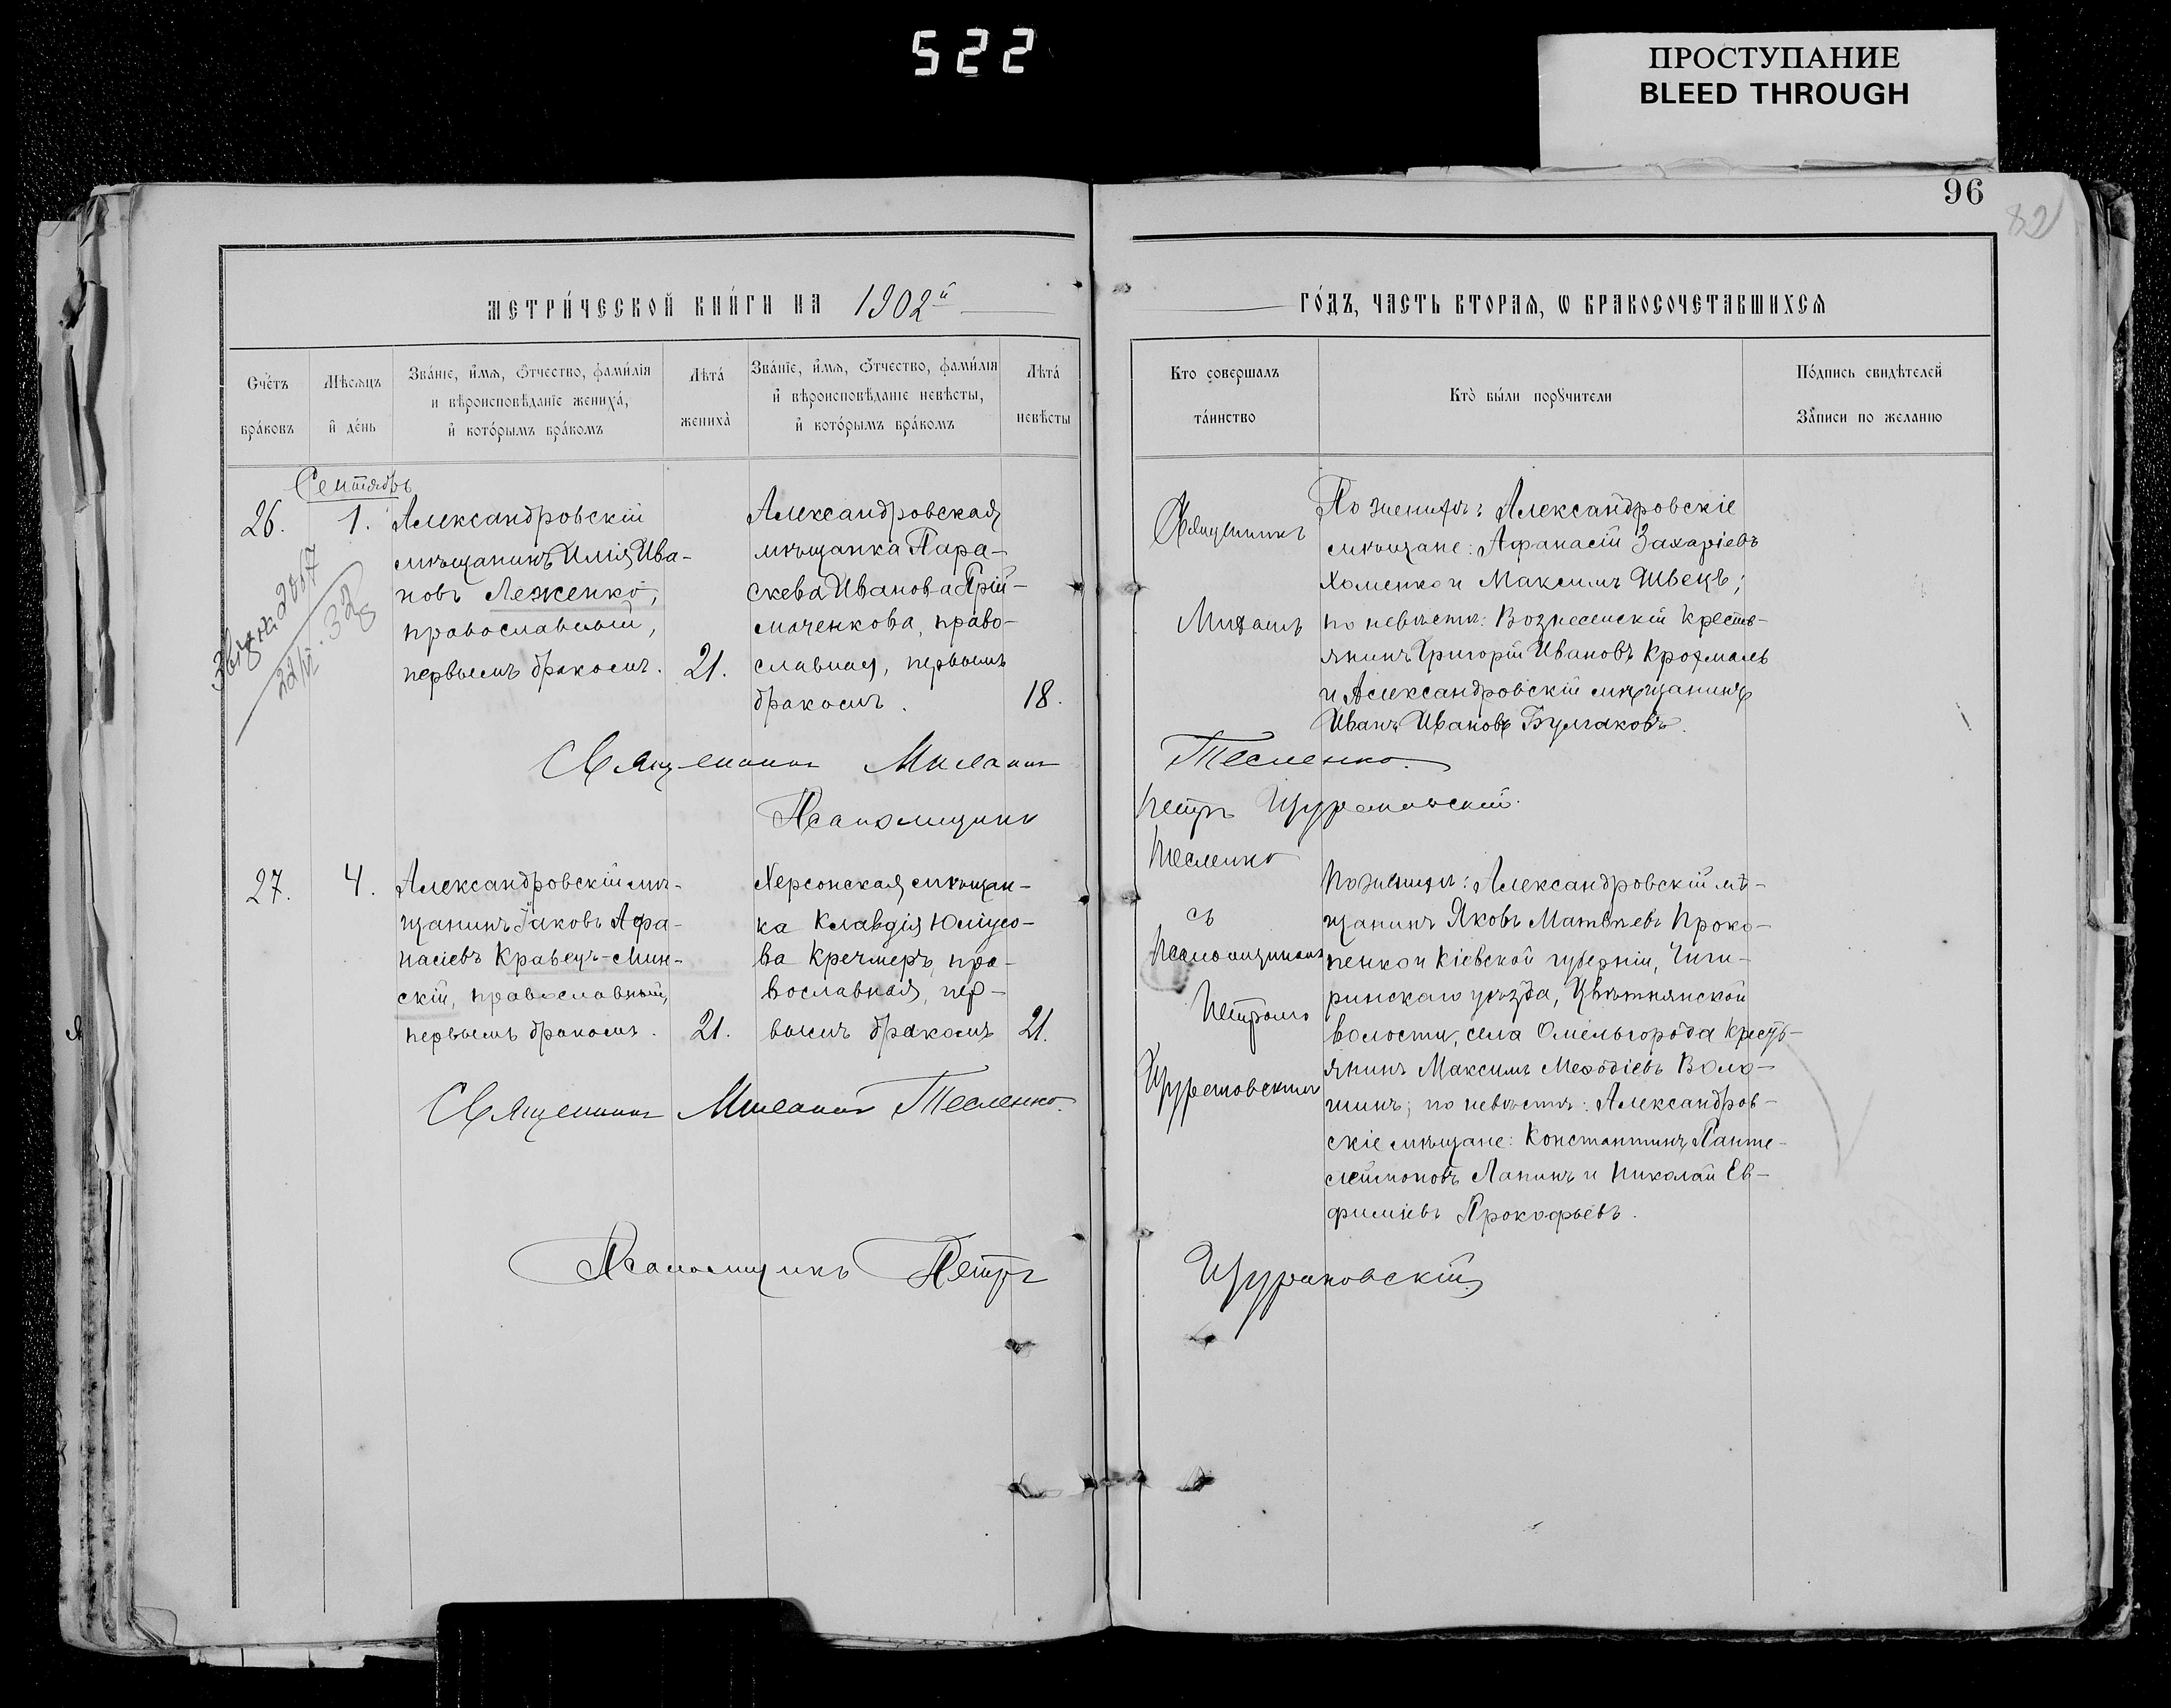 522
ПРОСТУПАНИЕ
BLEED THROUGH
96
82
МЕТРИ́ЧЕСКОЙ КНИ́ГИ НА 1902й
ГО́ДЪ, ЧАСТЬ ВТОРАѦ, Ѡ БРАКОСОЧЕТАВШИХСѦ
Счётъ
бра́ковъ
Мѣсяцъ
и де́нь
Зва́нїе, и́мя, ѻ҆́тчество, фами́лїя
и вѣроисповѣ́данїе жениха́,
и кото́рымъ бра́комъ
Лѣта́
жениха̀
Зва́нїе, и́мя, ѻ҆́тчество, фами́лїя
и вѣроисповѣ́данїе невѣ́сты,
и кото́рымъ бра́комъ
Лѣта́
невѣ́сты
Кто совершалъ
та́инство
Кто̀ бы́ли порꙋчители
По́дпись свидѣ́телей
За́писи по желанію
Сентябрь
26.
1.
Александровскій
мѣщанинъ Илія Ива-
новъ Леженко,
православный,
первымъ бракомъ.
21.
Александровская
мѣщанка Пара-
скева Иванова Прій-
маченкова, право-
славная, первымъ
бракомъ.
18.
Священникъ
Михаилъ
Тесленко
съ
Псаломщикомъ
Петромъ
По женихѣ: Александровскіе
мѣщане: Афанасій Захаріевъ
Хоменко и Максимъ Швецъ;
по невѣстѣ: Вознесенскій кресть-
янинъ Григорій Ивановъ Крохмаль
и Александровскій мѣщанинъ
Иванъ Ивановъ Булгаковъ.
Священникъ Михаилъ Тесленко.
Псаломщикъ Петръ
27.
4.
Александровскій мѣ-
щанинъ Іаковъ Афа-
насіевъ Кравецъ-Мин-
скій, православный,
первымъ бракомъ.
21.
Херсонская мѣщан-
ка Клавдія Юліусо-
ва Кречмеръ, пра-
вославная, пер-
вымъ бракомъ
21.
По женихѣ: Александровскій мѣ-
щанинъ Яковъ Матвѣевъ Проко-
пенко и Кіевской губерніи, Чиги-
ринскаго уѣзда, Цвѣтнянской
волости, села Омельгорода кресть-
янинъ Максимъ Меѳодіевъ Воло-
шинъ; по невѣстѣ: Александров-
скіе мѣщане: Константинъ Панте-
леймоновъ Лапинъ и Николай Ев-
фиміевъ Прокофьевъ.
Священникъ Михаилъ Тесленко.
Псаломщикъ Петръ